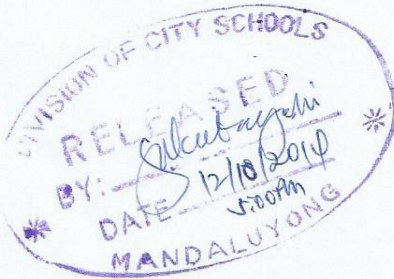 DIVISION OF CITY SCHOOLS
RELEASED
BY:
DATE 12/10/2014
5:00PM
MANDALUYONG